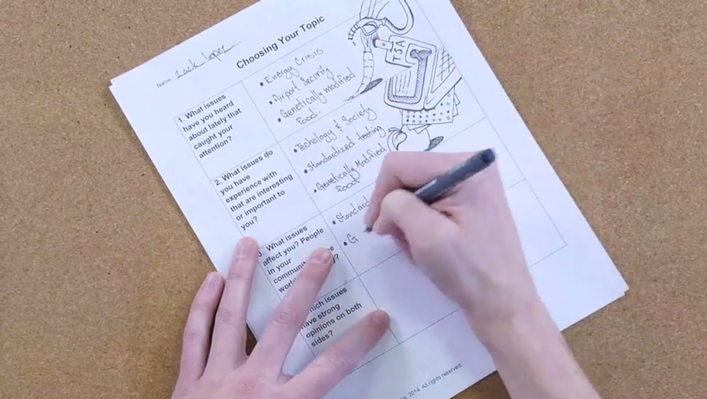 Choosing Your Topic
Name
1. What issues
have you heard
about lately that
caught your
attention?
• Energy Crisis
• Airport Security
• Genetically modified
Food
TSA
2. What issues do
you have
experience with
that are interesting
or important to
you?
• Techology & Society
• Standardized testing
• Genetically Modified
Food
3. What issues
affect you? People
in your
• Standard
• G
which issues
have strong
opinions on both
sides?
2014. All rights reserved.